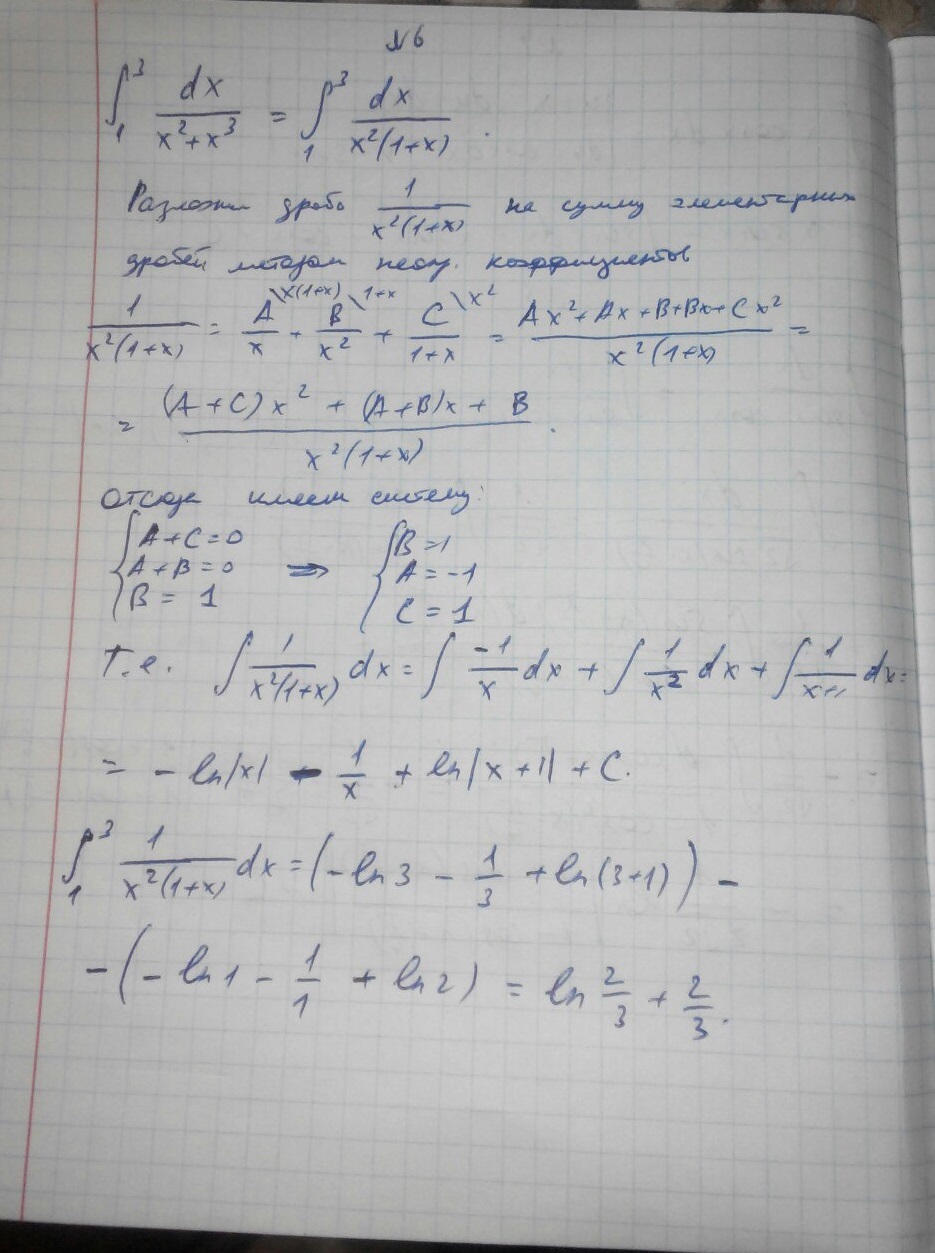 №6
∫₁³ dx/(x²+x³) = ∫₁³ dx/(x²(1+x)).
Разложим дробь 1/(x²(1+x)) на сумму элементарных
дробей методом неопр. коэффициентов
1/(x²(1+x)) = A\x(1+x)/x + B\1+x/x² + C\x²/(1+x) = (Ax²+Ax+B+Bx+Cx²)/(x²(1+x)) =
= ((A+C)x² + (A+B)x + B)/(x²(1+x)).
Отсюда имеем систему:
{A+C=0 {B=1
{A+B=0 => {A=-1
{B=1 {C=1
Т.е. ∫ 1/(x²(1+x)) dx = ∫ -1/x dx + ∫ 1/x² dx + ∫ 1/(x+1) dx =
= -ln|x| - 1/x + ln|x+1| + C.
∫₁³ 1/(x²(1+x)) dx = (-ln3 - 1/3 + ln(3+1)) -
-(-ln1 - 1/1 + ln2) = ln 2/3 + 2/3.